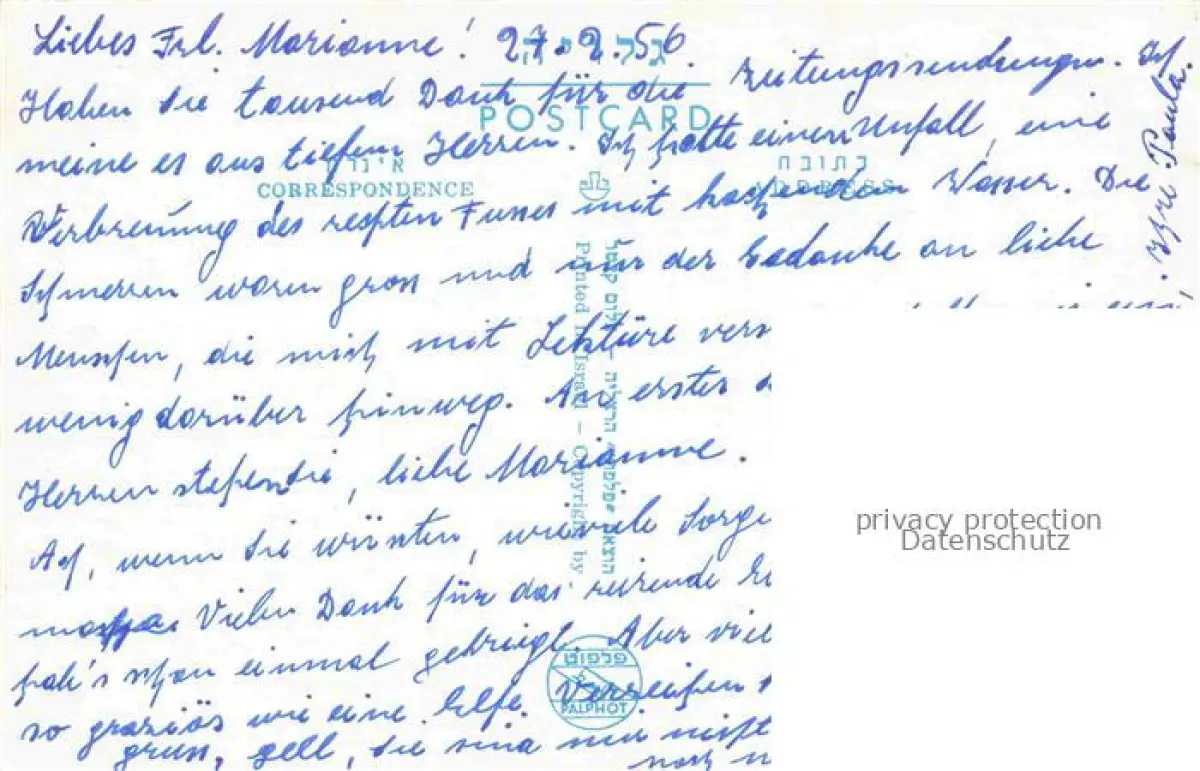 Liebes Frl. Marianne! 27.2.56
גלויה
Haben Sie tausend Dank für die Zeitungssendungen. Ich
POSTCARD
meine es aus tiefem Herzen. Ich hatte einen Unfall, eine
CORRESPONDENCE
כתובת
ADDRESS
Verbrennung des rechten Fusses mit kochendem Wasser. Die
Schmerzen waren gross und nur der Gedanke an liebe
Printed in Israel – Copyright by
Menschen, die mich mit Lektüre vers
wenig darüber hinweg. An erster
Herzen stehen Sie, liebe Marianne.
Ach, wenn Sie wüssten, wieviele Sorge
Vielen Dank für das reizende
hab's schon einmal gekriegt. Aber viel
פלפוט
PALPHOT
so graziös wie eine Elfe. Verzeihen
gruss, gell, Sie sind mir nicht
noch
Ihre Paula.
privacy protection
Datenschutz